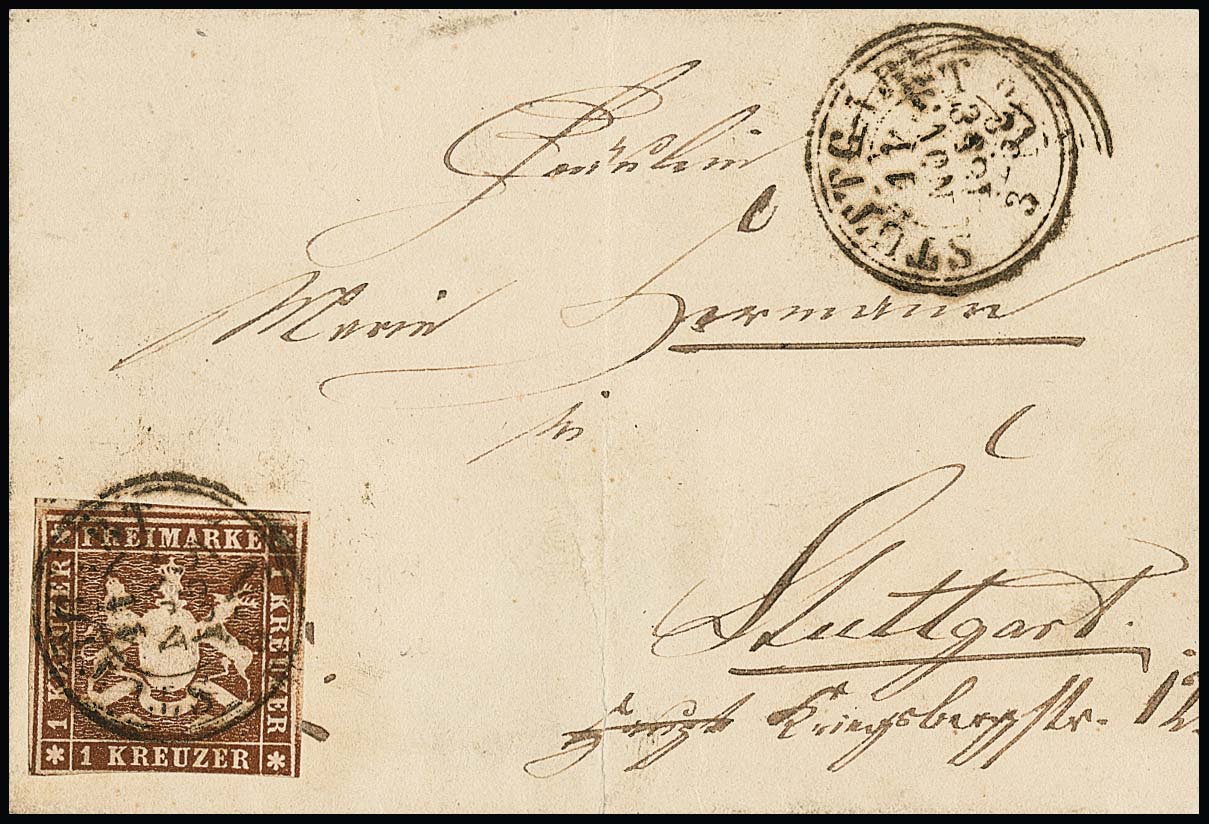 Fräulein
Marie Hermann
in
Stuttgart.
Kriegsbergstr. 12
STUTTGART
FREIMARKE
1 KREUZER
1 KREUZER
1 KREUZER